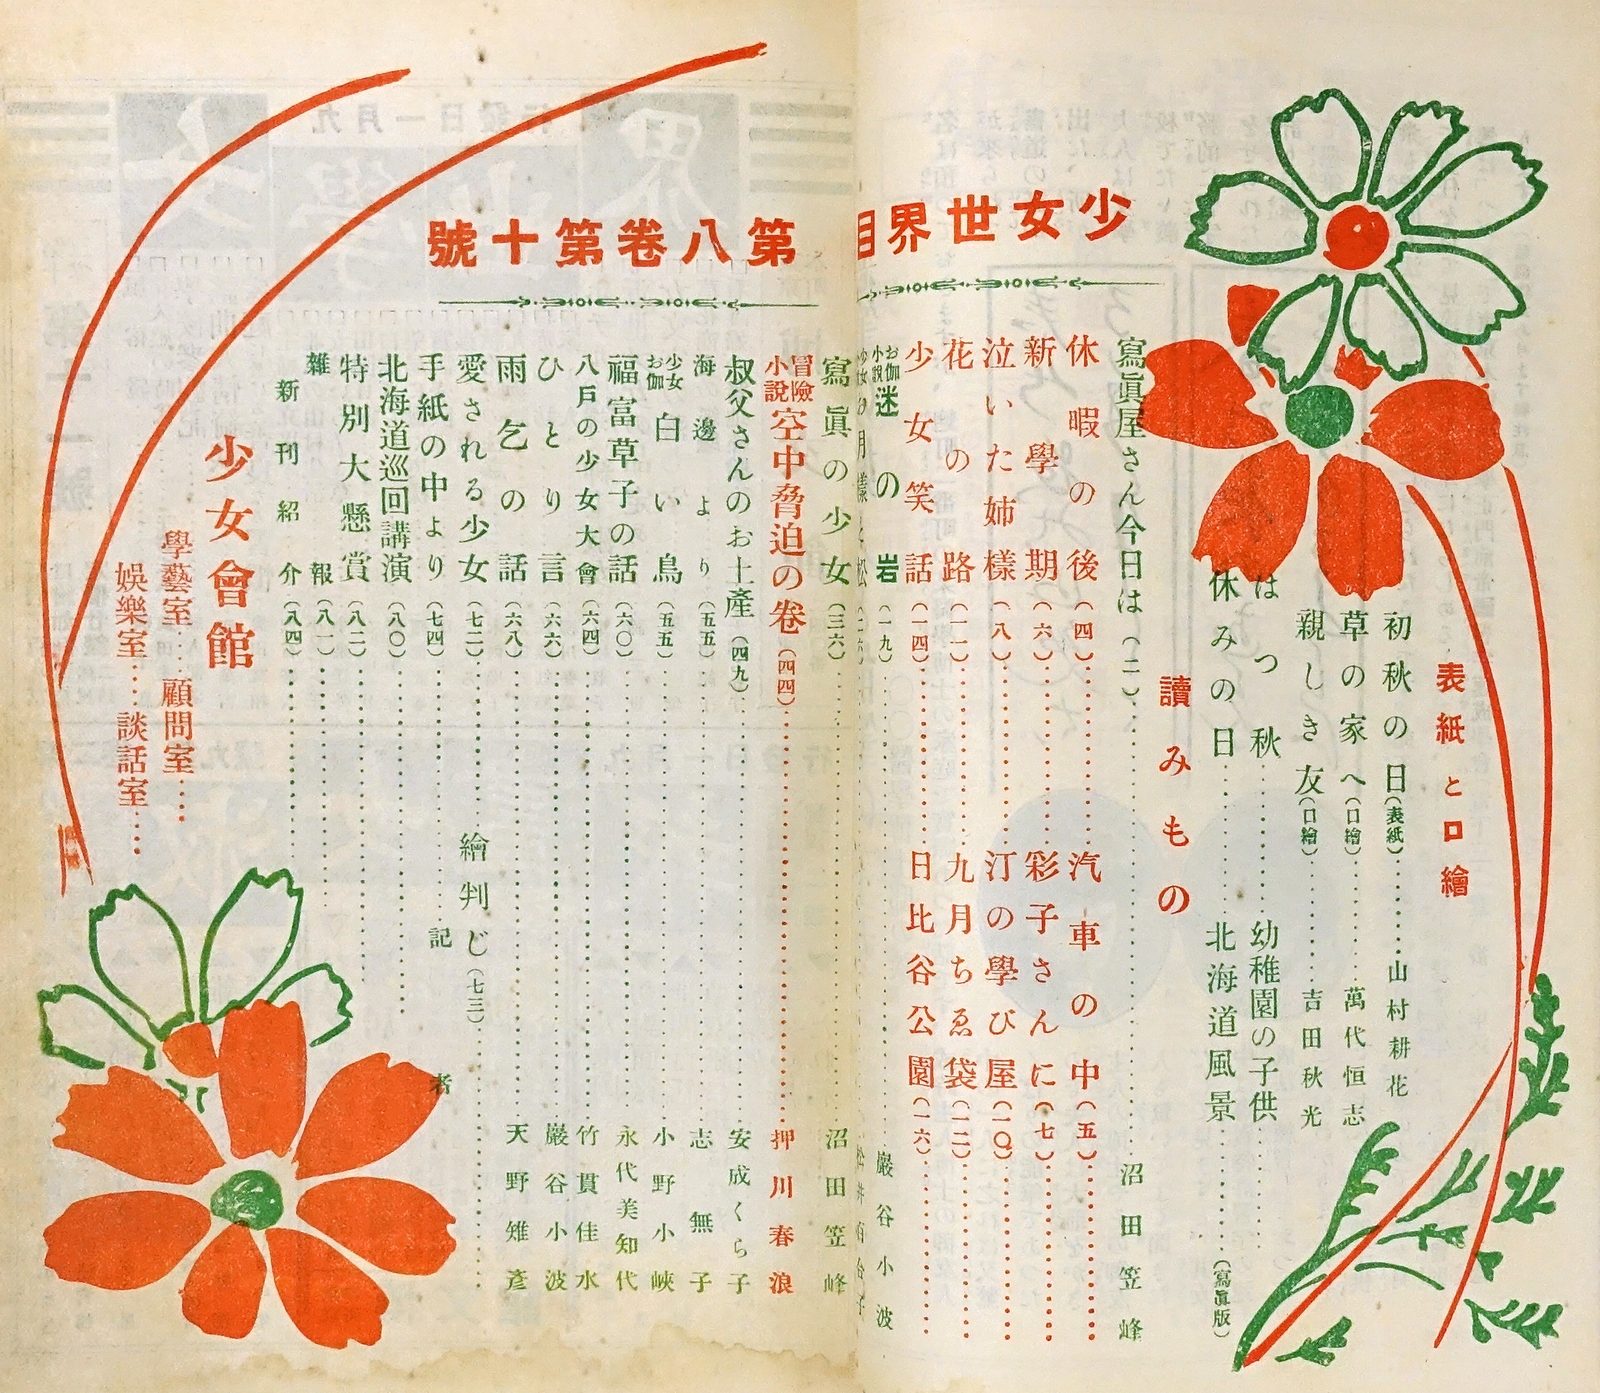 少女世界目
第八卷第十號
表紙と口繪
初秋の日(表紙)……山村耕花
草の家へ(口繪)……萬代恒志
親しき友(口繪)……吉田秋光
はつ秋……幼稚園の子供
休みの日……北海道風景……(寫眞版)
讀みもの
寫眞屋さん今日は(二)……沼田笠峰
休暇の後(四)……汽車の中(五)……
新學期(六)……彩子さんに(七)……
泣いた姉樣(八)……汀の學び屋(一〇)……
花の路(一一)……九月ちゑ袋(一二)……
少女笑話(一四)……日比谷公園(一六)……
お伽小說 迷の岩(一九)……巖谷小波
寫眞の少女(三六)……沼田笠峰
冒險小說 空中脅迫の卷(四四)……押川春浪
叔父さんのお土產(四九)……安成くら子
海邊より(五五)……志無子
少女お伽 白い鳥(五五)……小野小峽
福富草子の話(六〇)……永代美知代
八戶の少女大會(六四)……竹貫佳水
ひとり言(六六)……巖谷小波
雨乞の話(六八)……天野雉彥
愛される少女(七二)……繪判じ(七三)……
手紙の中より(七四)……記者
北海道巡回講演(八〇)……
特別大懸賞(八二)……
雜報(八一)……
新刊紹介(八四)……
少女會館
學藝室……顧問室……
娛樂室……談話室……